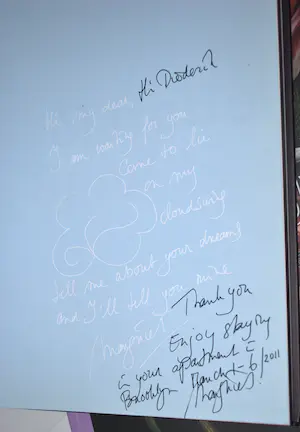 Hi my dear, Hi Diederik
I am waiting for you
Come to lie
on my
cloudswing
tell me about your dreams
and I'll tell you mine
Thank you
Enjoy staying
in your apartment in
Brooklyn March 1-6/2011